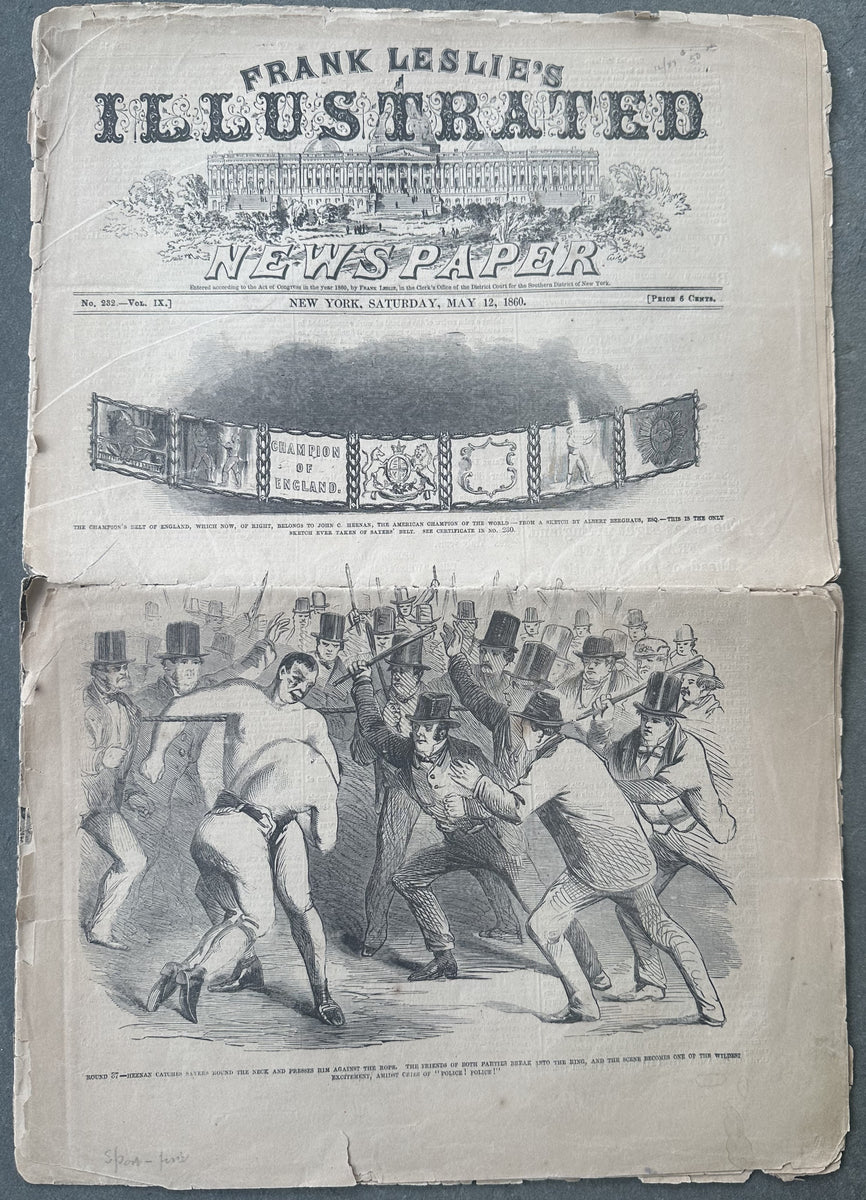 FRANK LESLIE'S
ILLUSTRATED
NEWSPAPER
Entered according to the Act of Congress in the year 1860, by FRANK LESLIE, in the Clerk's Office of the District Court for the Southern District of New York.
No. 232.—VOL. IX.] NEW YORK, SATURDAY, MAY 12, 1860. [PRICE 6 CENTS.
CHAMPION
OF
ENGLAND.
THE CHAMPION'S BELT OF ENGLAND, WHICH NOW, OF RIGHT, BELONGS TO JOHN C. HEENAN, THE AMERICAN CHAMPION OF THE WORLD—FROM A SKETCH BY ALBERT BERGHAUS, ESQ.—THIS IS THE ONLY
SKETCH EVER TAKEN OF SAYERS' BELT. SEE CERTIFICATE IN NO. 230.
ROUND 37—HEENAN CATCHES SAYERS ROUND THE NECK AND PRESSES HIM AGAINST THE ROPE. THE FRIENDS OF BOTH PARTIES BREAK INTO THE RING, AND THE SCENE BECOMES ONE OF THE WILDEST
EXCITEMENT, AMIDST CRIES OF "POLICE! POLICE!"